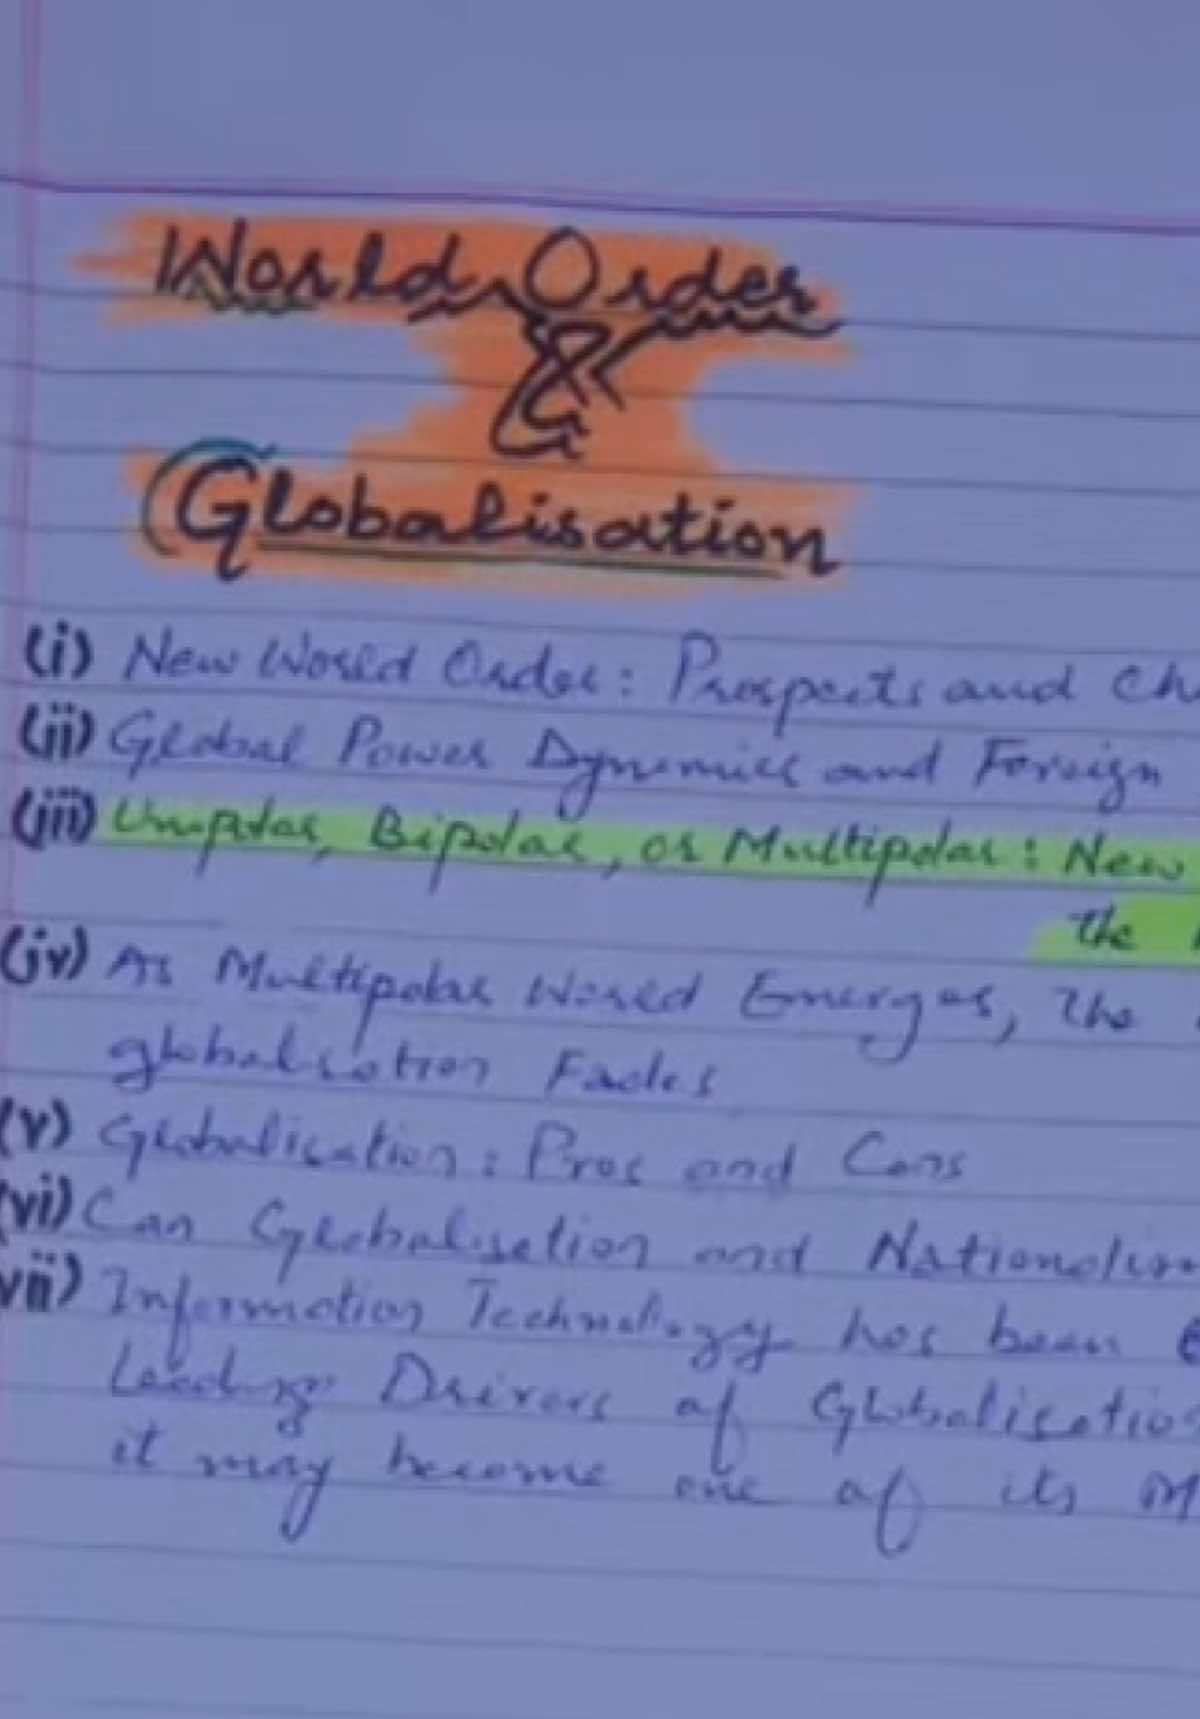 World Order
&
Globalisation
(i) New World Order: Prospects and Ch
(ii) Global Power Dynamics and Foreign
(iii) Unipolar, Bipolar, or Multipolar: New
the
(iv) As Multipolar World Emerges, the
globalisation Fades
(v) Globalisation: Pros and Cons
(vi) Can Globalisation and Nationalism
(vii) Information Technology has been
Leading Drivers of Globalisation
it may become one of its